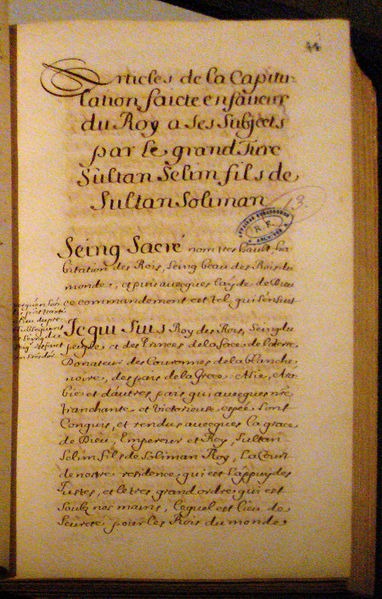 Articles de la Capitu-
lation faicte en faveur
du Roy a Ses Subjects
par le grand Turc
Sultan Selim fils de
Sultan Soliman
13.
R. F.
Seing Sacré nom tres hault, ha-
bitation des Rois, Seing beau des Rois du
monde, et puis avecques layde de Dieu
ce commandement est tel qui s'ensuit
Je qui Suis Roy des Rois, Seing du
peuple et des Princes de la face de la terre
Donateur des Couronnes de la blanche
noire, des pais de la Grece Asie, Ara-
bie et d'autres pais qui avecques nre
tranchante et victorieuse espée sont
Conquis, et rendus avecques la grace
de Dieu, Empereur et Roy, Sultan
Selim fils de Soliman Roy, La Cour
de nostre residence qui est l'appuy des
Justes, et le tres grand ordre qui est
Soubz nos mains, lequel est lieu de
Seureté pour les Rois du monde